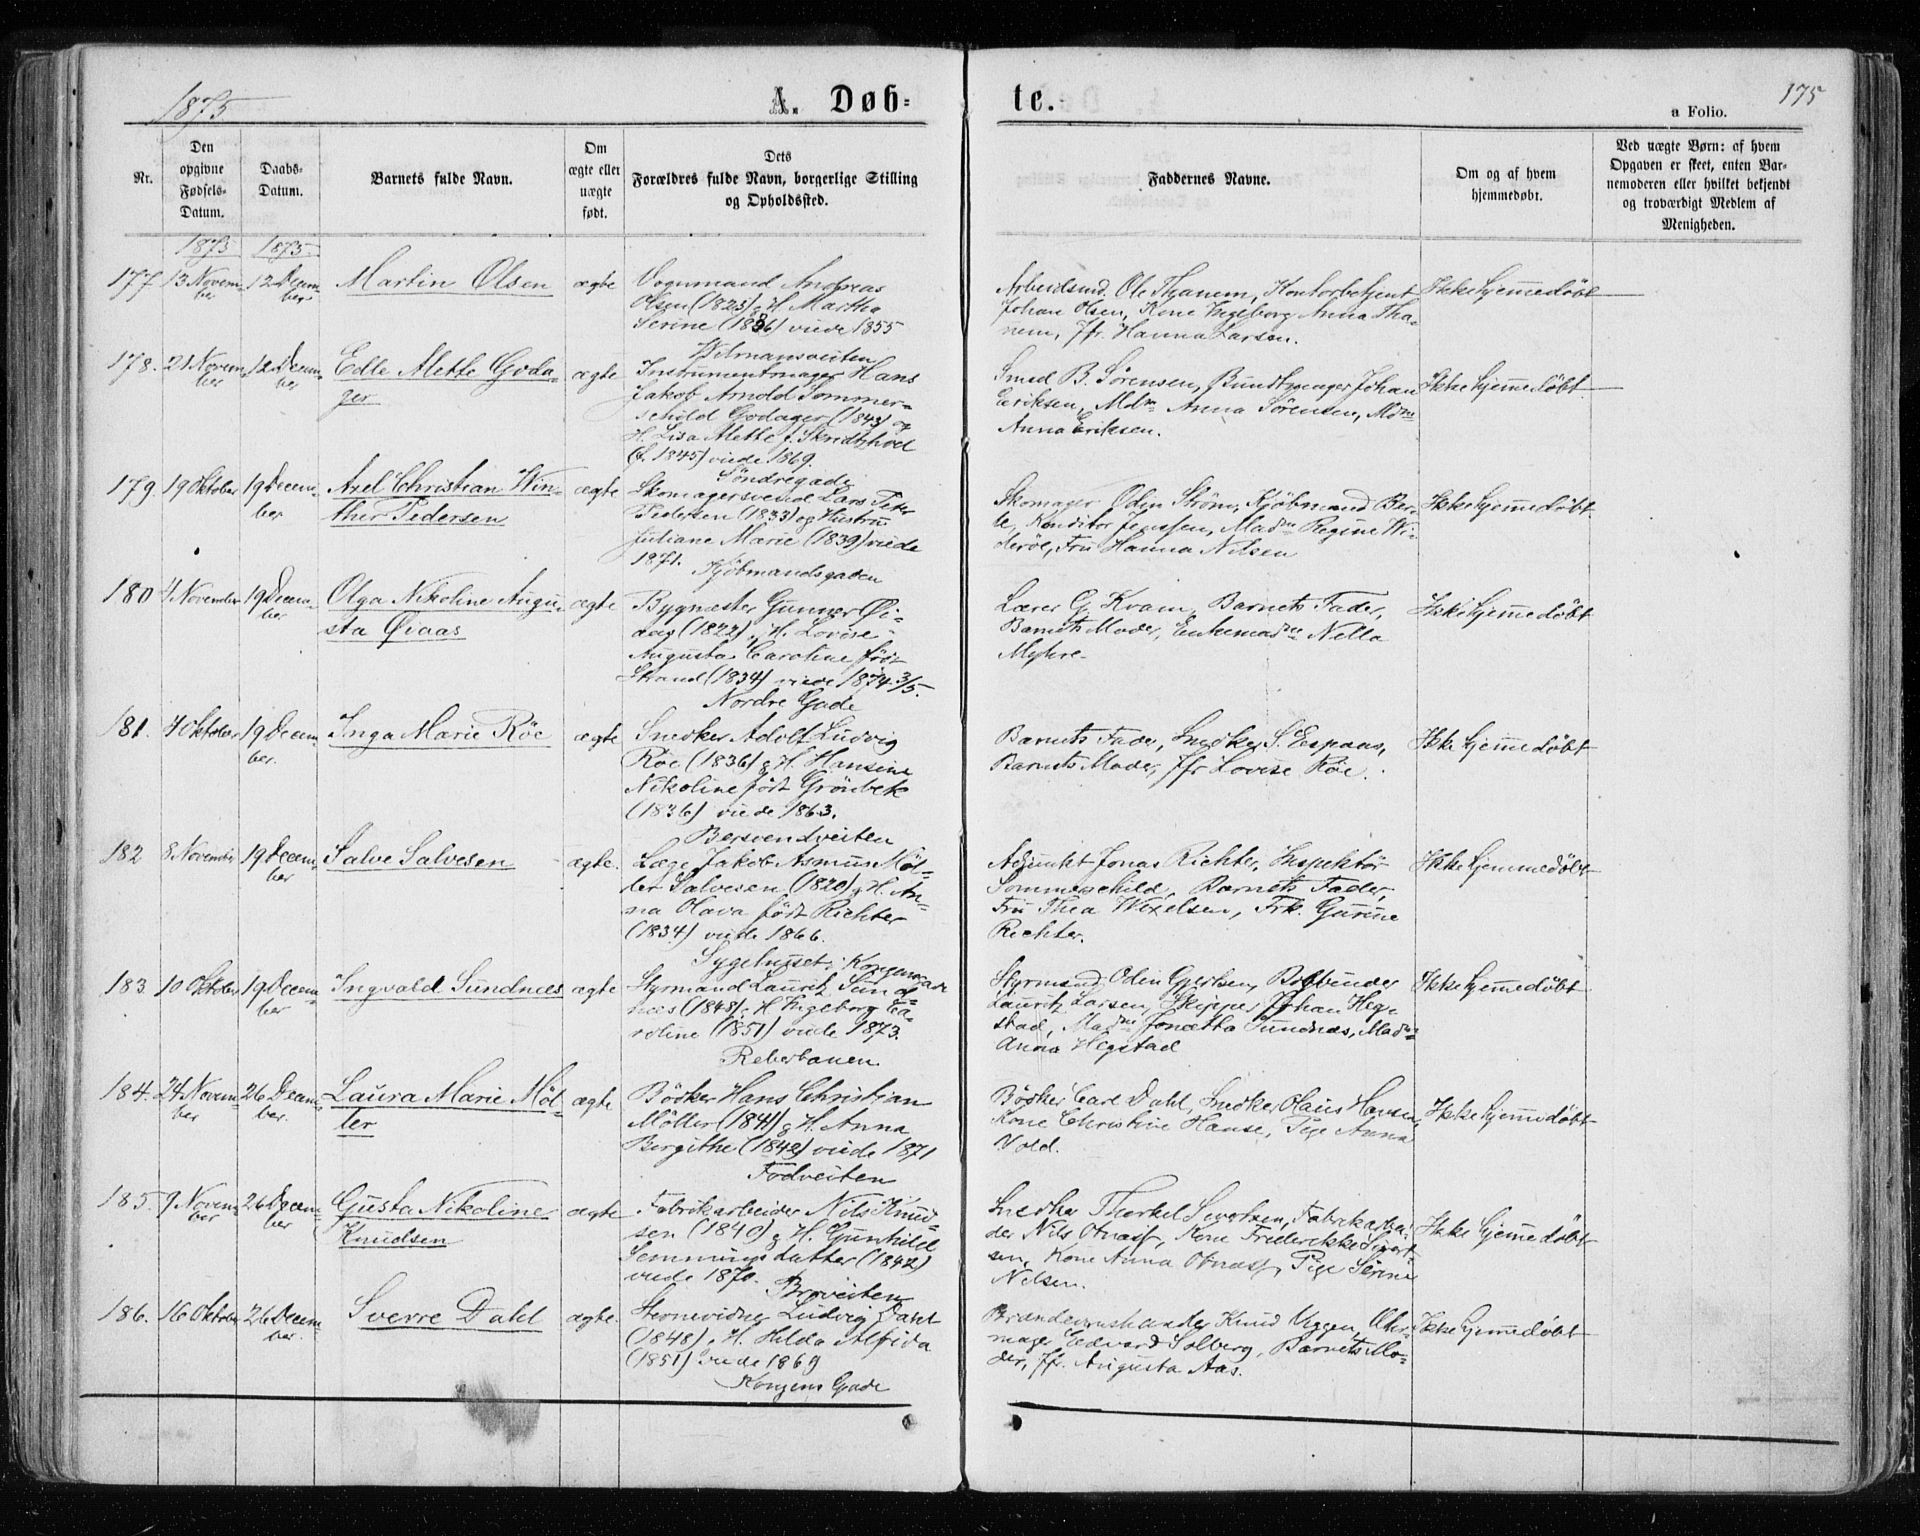 1875
A. Døb-
te.
175
a Folio.
Nr.
Den opgivne Fødsels-Datum.
Daabs-Datum.
Barnets fulde Navn.
Om ægte eller uægte født.
Dets Forældres fulde Navn, borgerlige Stilling og Opholdssted.
Faddernes Navne.
Om og af hvem hjemmedøbt.
Ved uægte Børn: af hvem Opgaven er skeet, enten Barnemoderen eller hvilket bekjendt og troværdigt Medlem af Menigheden.
1875 1875
177 13 Novem-
ber
12 Decem-
ber
Martin Olsen
ægte
Vognmand Andreas
Olsen (1825) g H. Martha
Serine (1836) viede 1855
Arbeidsmd. Ole Thanem, Kontorbetjent
Johan Olsen, Kone Ingeborg Anna Tha-
nem, Jfr. Hanna Larsen.
Ikke hjemmedøbt
178. 21 Novem-
ber
12 Decem-
ber
Edle Mette Goda-
ger
ægte
Instrumentmager Hans
Jakob Arnold Sommer-
schild Godager (1843) og
H. Lisa Mette f.
(f. 1845) viede 1869.
Smed B. Sörensen, Bundtmager Johan
Eriksen, Mdm Anna Sörensen, Mdm
Anna Eriksen.
Ikke hjemmedøbt
179. 19 Oktober
19 Decem-
ber
Axel Christian Win-
ther Pedersen
ægte
Söndregade
Skomagersvend Lars Peter
Pedersen (1833) og Hustru
Juliane Marie (1839) viede
1871.
Skomager Odin Ström, Kjöbmand Ber-
le, Konditor Jenssen, Madm Regine Wi-
deröe, Fru Hanna Nilsen
Ikke hjemmedøbt.
180 4 November
19 Decem-
ber
Olga Nikoline Augu-
sta Öiaas
ægte
Kjöbmandsgaden
Bygmester Gunner Öi-
aas (1822), g H. Lovise
Augusta Caroline född
Strand (1834) viede 1874 3/5.
Lærer G. Kvam, Barnets Fader,
Barnets Moder, Enkemadm Nella
Myhre.
Ikke hjemmedøbt
181. 4 Oktober
19 Decem-
ber.
Inga Marie Röe
ægte
Nordre Gade
Snedker Adolf Ludvig
Röe (1836) g H. Hansine
Nikoline født Grönbek
(1836) viede 1863.
Barnets Fader, Snedker S. Espaas,
Barnets Moder, Jfr Lovise Röe.
Ikke hjemmedøbt
182 8 November
19 Decem-
ber
Salve Salvesen
ægte.
Bersvendveiten
Læge Jakob Asmun Möl-
ler Salvesen (1820) g H. An-
na Olava født Richter
(1834) viede 1866.
Sygehuset.
Adjunkt Jonas Richter, Inspektör
Sommerschild, Barnets Fader,
Fru Thea Wexelsen, Frk. Gurine
Richter.
Ikke hjemmedøbt
183. 10 Oktober
19 Decem-
ber
Ingvald Sundnes
ægte
Kongensgade
Styrmand Lauritz Sund-
nes (1848) g H. Ingeborg Ca-
roline (1851) viede 1873.
Reberbanen
Styrmand Odin Gjertsen, Bogbinder
Lauritz Larsen, Skipper Johan Heg-
stad, Madm Jonetta Sundnes, Madm
Anna Hegstad
Ikke hjemmedøbt
184. 24 Novem-
ber
26 Decem-
ber.
Laura Marie Möl-
ler
ægte
Bödker Hans Christian
Möller (1841) g H. Anna
Bergithe (1842) viede 1871
Bödker Carl Dahl, Snedker Olaus Hansen,
Kone Christine Hanse, Pige Anna
Vold.
Ikke hjemmedøbt
185. 9 Novem-
ber
26 Decem-
ber
Gusta Nikoline
Knudsen
ægte
Fabrikarbeider Nils Knud-
sen (1840) g H. Gunhild
Semmings datter (1842)
viede 1870.
Broveiten
Snedker Thorkel Sivertsen, Fabrikarbei-
der Nils Otnass, Kone Frederikke Sivert-
sen, Kone Anna Otnass, Pige Serine
Nelsen.
Ikke hjemmedøbt
186. 16 Oktober
26 Decem-
ber.
Sverre Dahl
ægte.
Ludvig Dahl
(1848) g H. Hilda Alfrida
(1851) viede 1869
Kongens Gade
Knud Uggen, Uhr-
mager Edvard Solberg, Barnets Mo-
der, Jfr. Augusta Aas.
Ikke hjemmedøbt